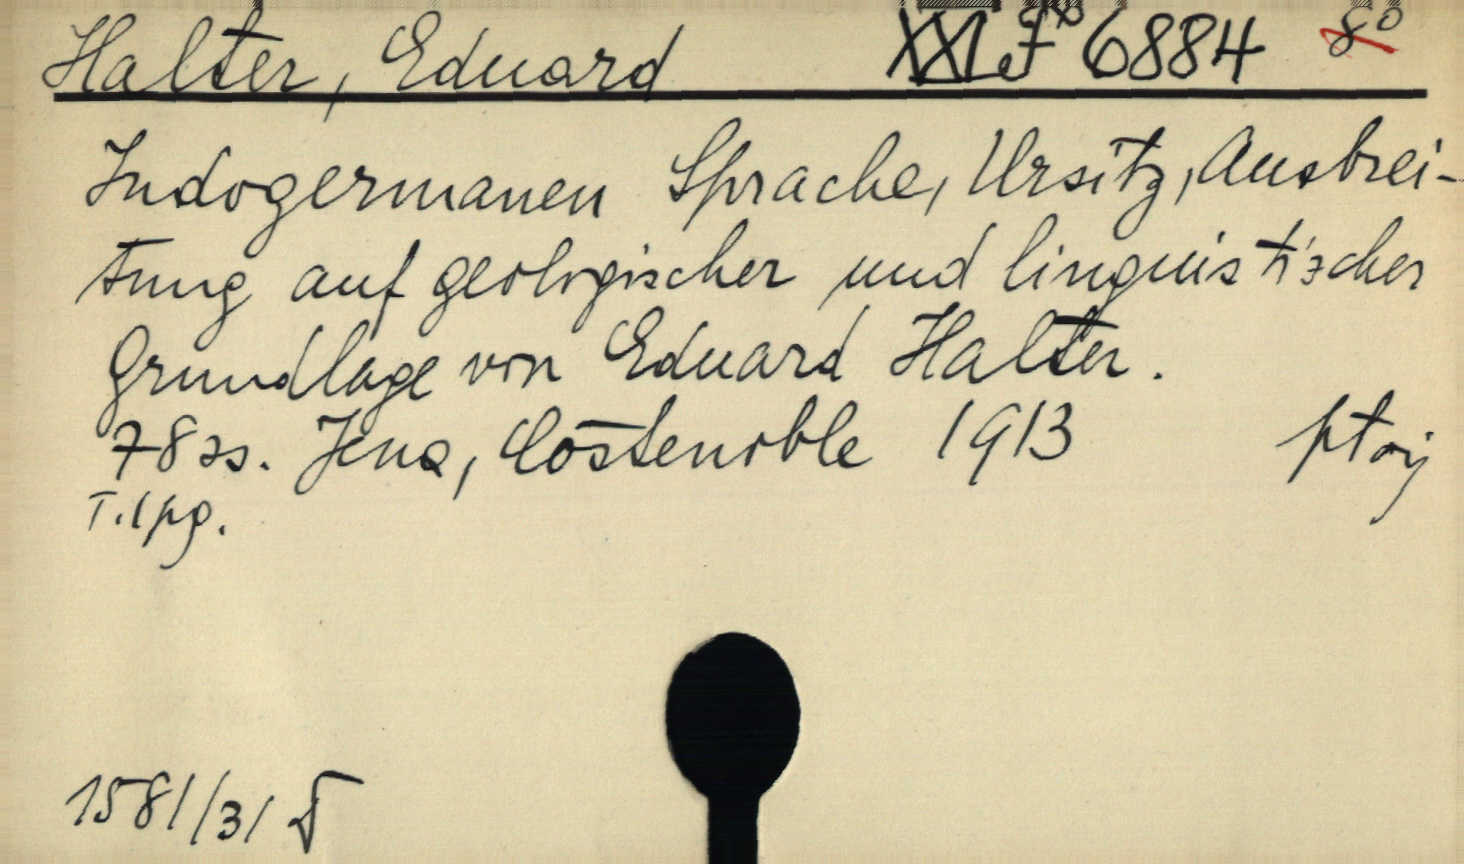 Halter, Eduard XXI F 6884 8°
Indogermanen Sprache, Ursitz, Ausbrei-
tung auf geologischer und linguistischer
Grundlage von Eduard Halter.
78 Jena, Costenoble 1913
T. 1 pg.
1581/31